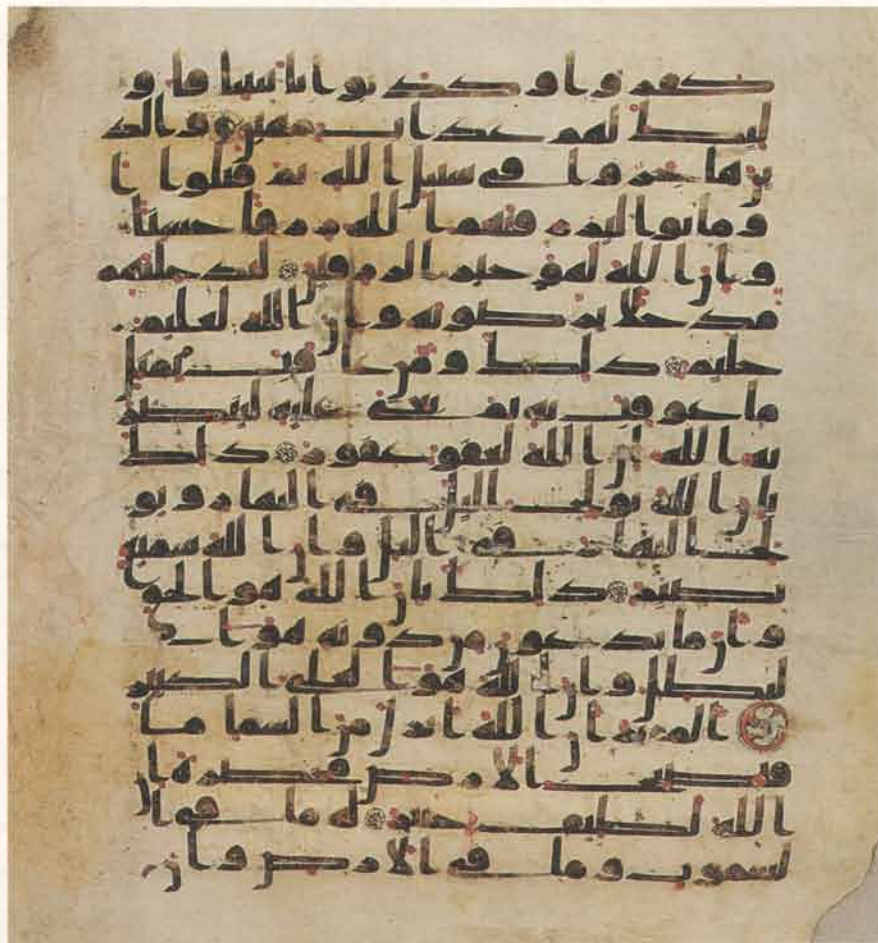 كفروا وكذبوا باىتنا فاو
لىك لهم عذاب مهين والذ
ين هاجروا في سبيل الله ثم قتلوا ا
و ماتوا ليرزقنهم الله رزقا حسنا
وان الله لهو خير الرزقين ليدخلنهم
مدخلا يرضونه وان الله لعليم
حليم ذلك ومن عاقب بمثل
ما عوقب به ثم بغي عليه لينصر
نه الله ان الله لعفو غفور ذلك
بان الله يولج اليل في النهار ويو
لج النهار في اليل وان الله سميع
بصير ذلك بان الله هو الحق
وان ما يدعون من دونه هو ا
لبطل وان الله هو العلي الكبير
الم تر ان الله انزل من السما ما
فتصبح الارض مخضرة ان
الله لطيف خبير له ما في ا
لسموت وما في الارض وان